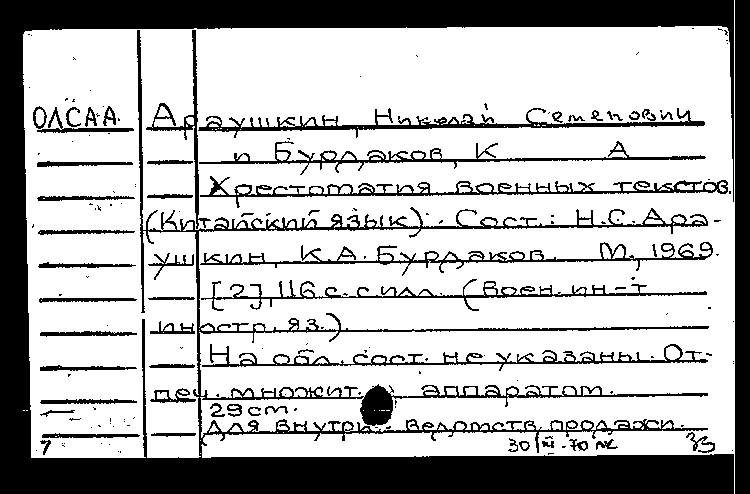 ОЛСАА Араушкин, Николай Семенович
и Бурдаков, К А
Хрестоматия военных текстов.
(Китайский язык). Сост.: Н.С.Ара-
ушкин, К.А.Бурдаков. М., 1969.
[2], 116 с. с илл. (Воен. ин-т
иностр. яз.).
На обл. сост. не указаны. От-
печ. множит. аппаратом.
29 cm.
Для внутри-ведомств. продажи.
7 30/III-70